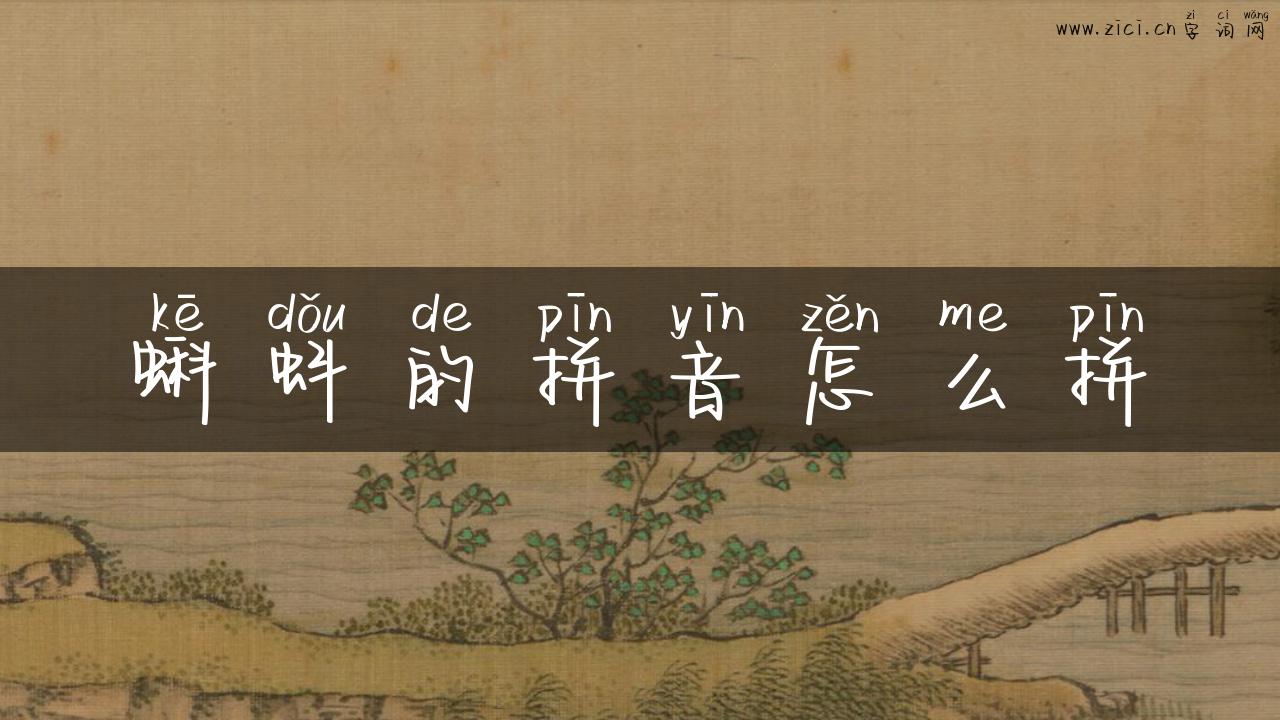 zì cí wǎng
www.zici.cn 字 词 网
kē dǒu de pīn yīn zěn me pīn
蝌 蚪 的 拼 音 怎 么 拼